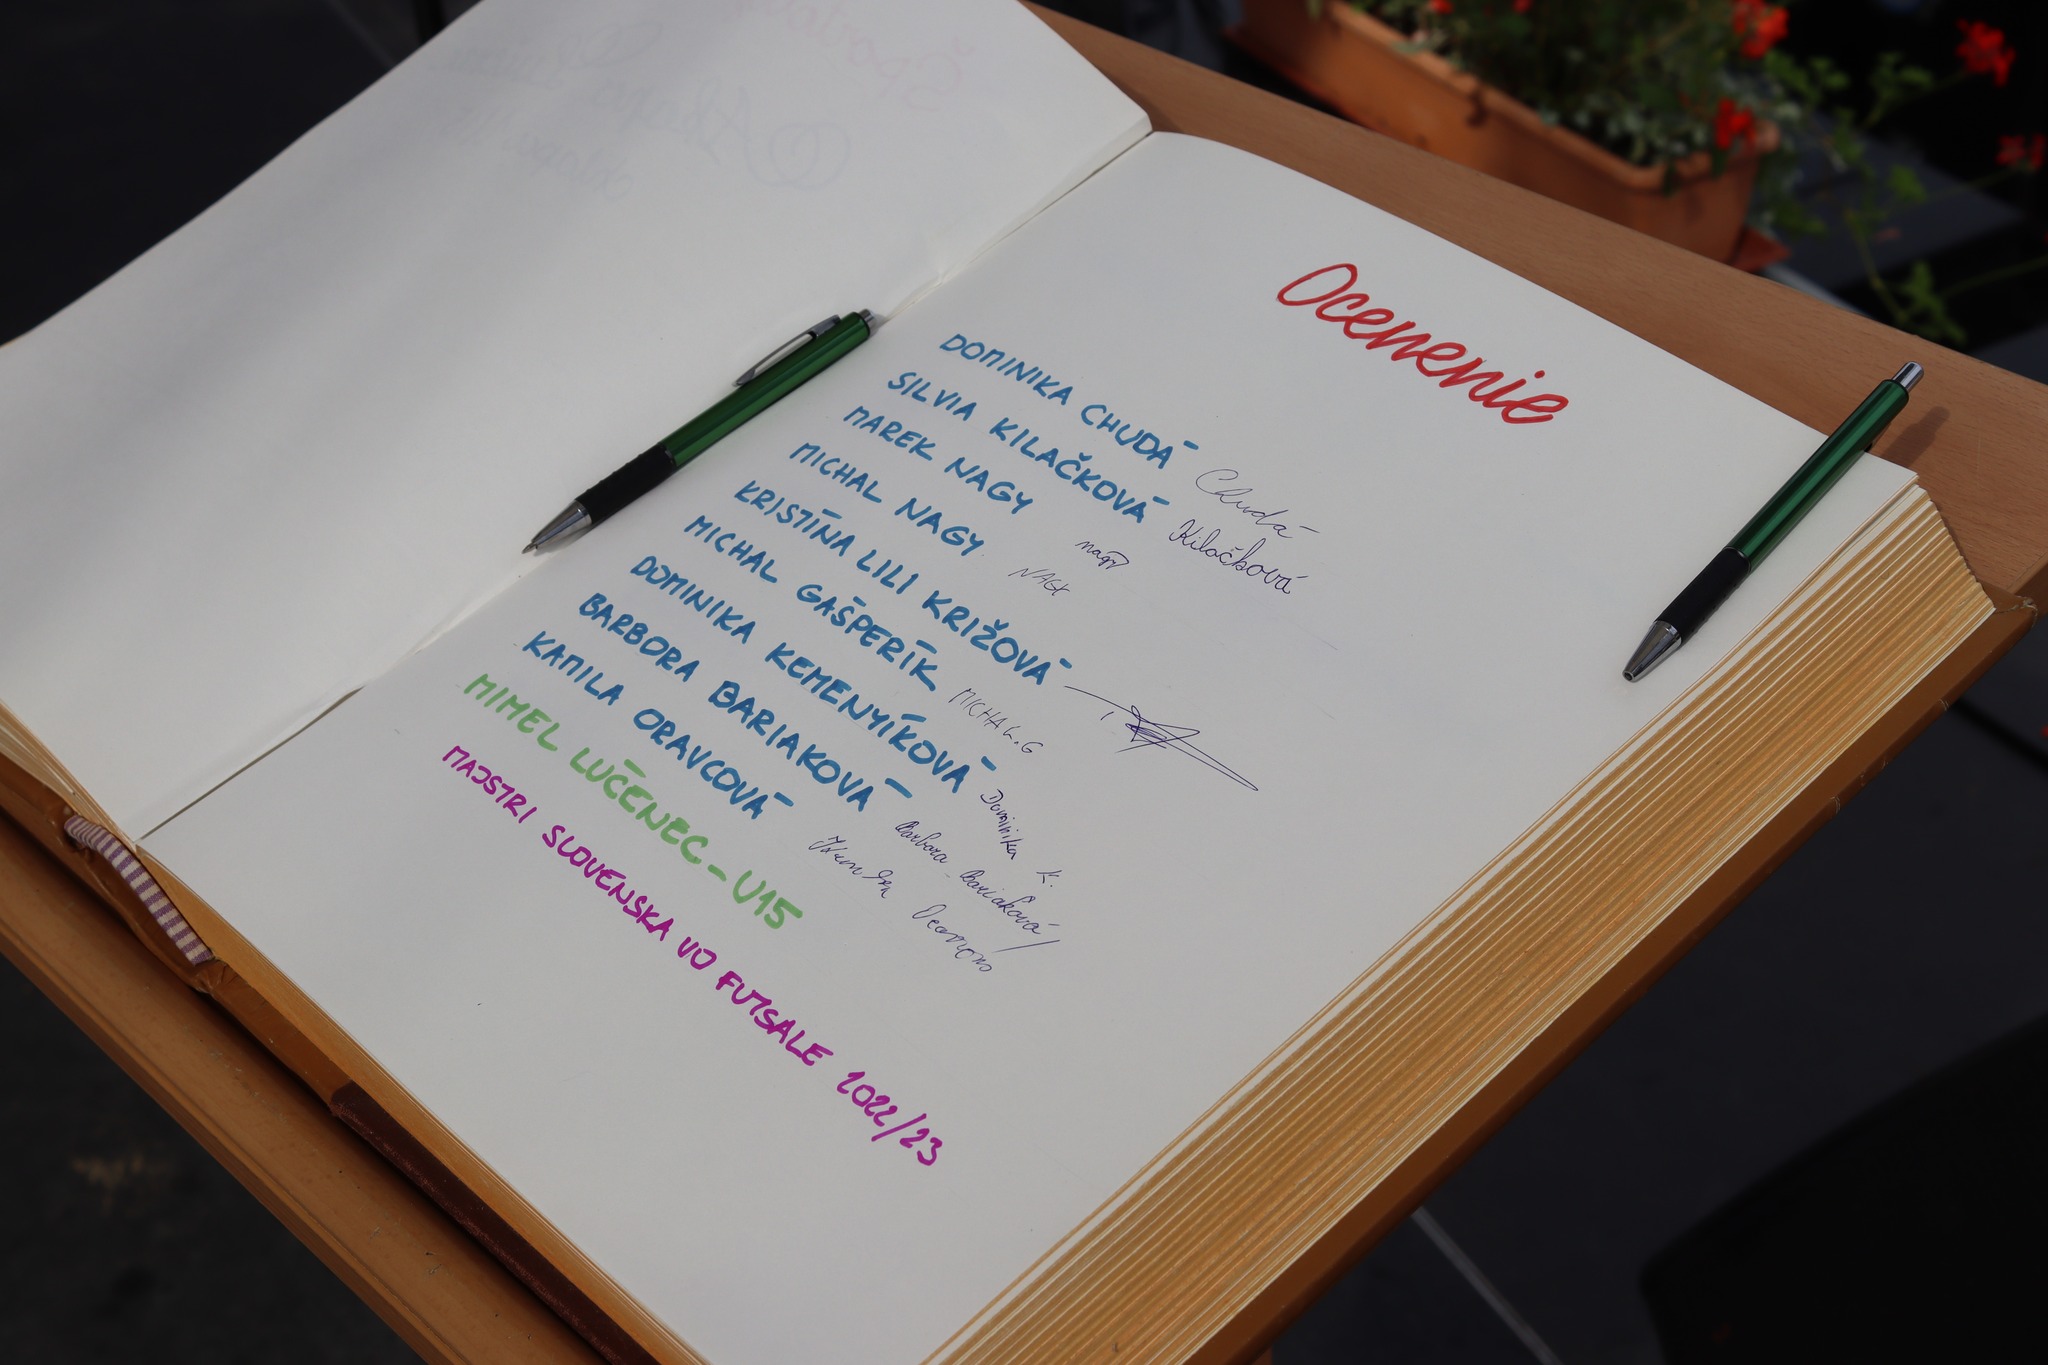 Ocenenie
DOMINIKA CHUDÁ Chudá
SILVIA KILAČKOVÁ Kilačková
MAREK NAGY nagy
MICHAL NAGY NAGY
KRISTÍNA LILI KRIŽOVÁ
MICHAL GAŠPERÍK MICHAL.G
DOMINIKA KEMENYÍKOVÁ Dominika K.
BARBORA BARIAKOVÁ Barbora Bariaková
KAMILA ORAVCOVÁ
MIMEL LUČENEC - U15
MAJSTRI SLOVENSKA VO FUTSALE 2022/23